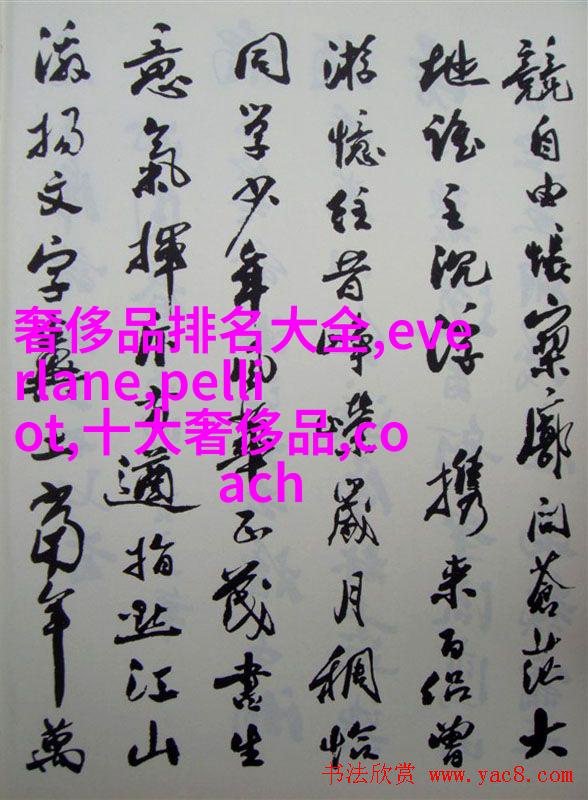 競自由悵寥廓问蒼茫大
地谁主沉浮 携来百侣曾
游憶往昔峥嵘歲月稠恰
同学少年风華正茂書生
意氣揮斥方遒指點江山
激揚文字糞土當年萬
奢侈品排名大全,eve
rlane,pelli
ot,十大奢侈品,co
ach
书法欣赏 www.yac8.com